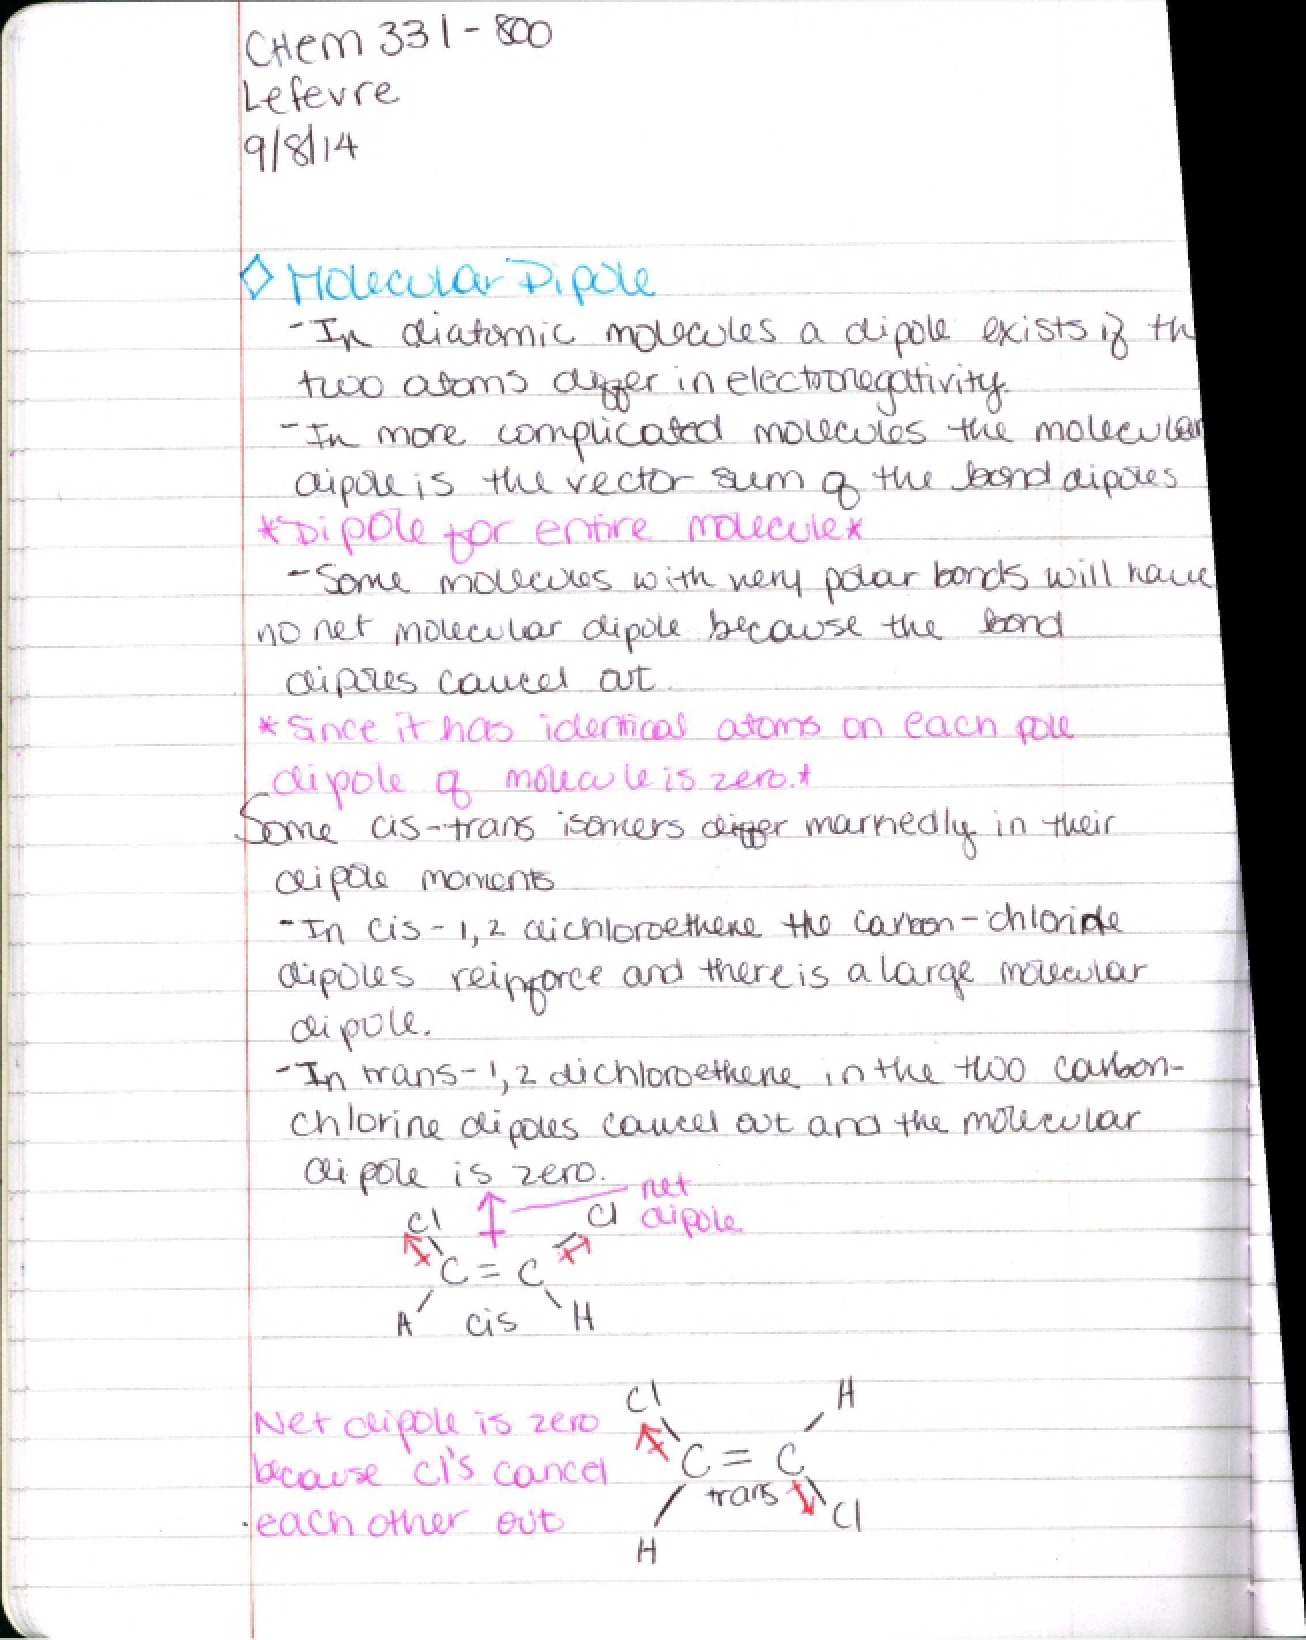 CHem 331-800
Lefevre
9/8/14
Molecular Dipole
-In diatomic molecules a dipole exists if th
two atoms differ in electronegativity.
-In more complicated molecules the molecular
dipole is the vector sum of the bond dipoles
*Dipole for entire molecule*
-Some molecules with very polar bonds will have
no net molecular dipole because the bond
dipoles cancel out.
*Since it has identical atoms on each pole
dipole of molecule is zero.*
Some cis-trans isomers differ markedly in their
dipole moments
-In cis-1,2 dichloroethene the carbon-chloride
dipoles reinforce and there is a large molecular
dipole.
-In trans-1,2 dichloroethene in the two carbon-
chlorine dipoles cancel out and the molecular
dipole is zero.
net
Cl Cl dipole
C = C
A cis H
Cl H
Net dipole is zero
because Cl's cancel C = C
trans
each other out Cl
H